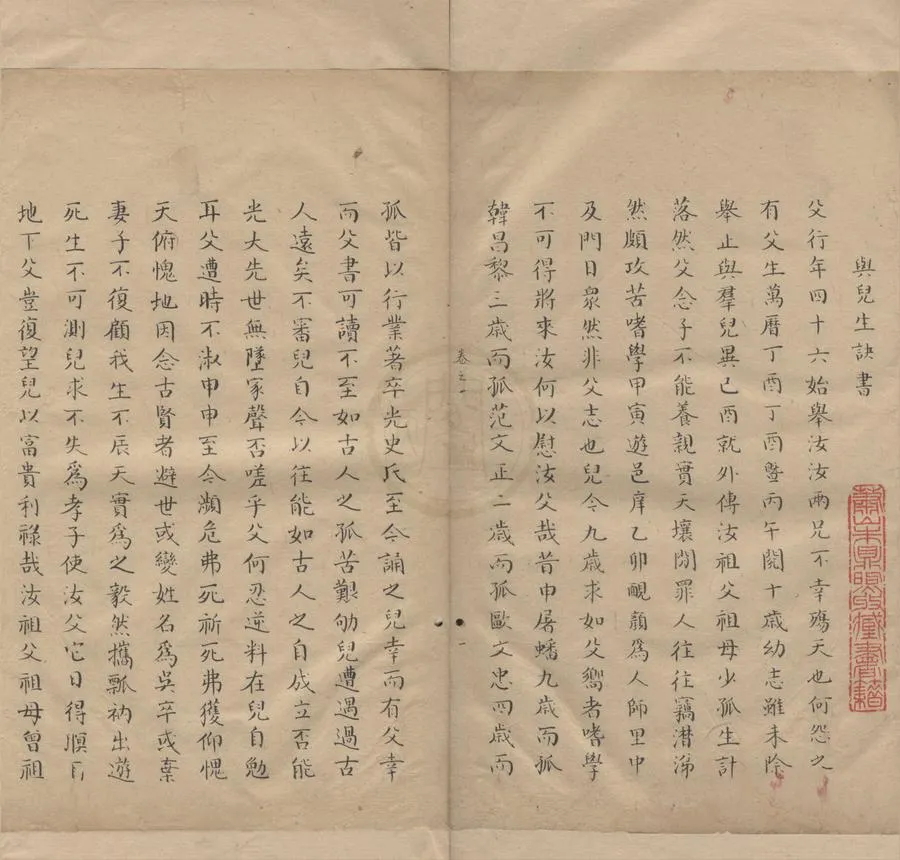 與兒生訣書
父行年四十六始舉汝汝兩兄不幸殤天也何怨之
有父生萬曆丁酉丁酉暨丙午閱十歲幼志雖未除
舉止與羣兒異己酉就外傳汝祖父祖母少孤生計
落然父念子不能養親實天壤間罪人往往竊潸涕
然頗攻苦嗜學甲寅遊邑庠乙卯靦顏為人師里中
及門日衆然非父志也兒今九歲求如父嚮者嗜學
不可得將來汝何以慰汝父哉昔申屠蟠九歲而孤
韓昌黎三歲而孤范文正二歲而孤歐文忠四歲而
卷之一
一
孤皆以行業著卒光史氏至今誦之兒幸而有父幸
而父書可讀不至如古人之孤苦艱劬兒遭遇過古
人遠矣不審兒自今以往能如古人之自成立否能
光大先世無墜家聲否嗟乎父何忍逆料在兒自勉
耳父遭時不淑申申至今瀕危弗死祈死弗獲仰愧
天俯愧地因念古賢者避世或變姓名為吳卒或棄
妻子不復顧我生不辰天實為之毅然攜瓢衲出遊
死生不可測兒求不失為孝子使汝父它日得順
地下父豈復望兒以富貴利祿哉汝祖父祖母曾祖
藏書籍